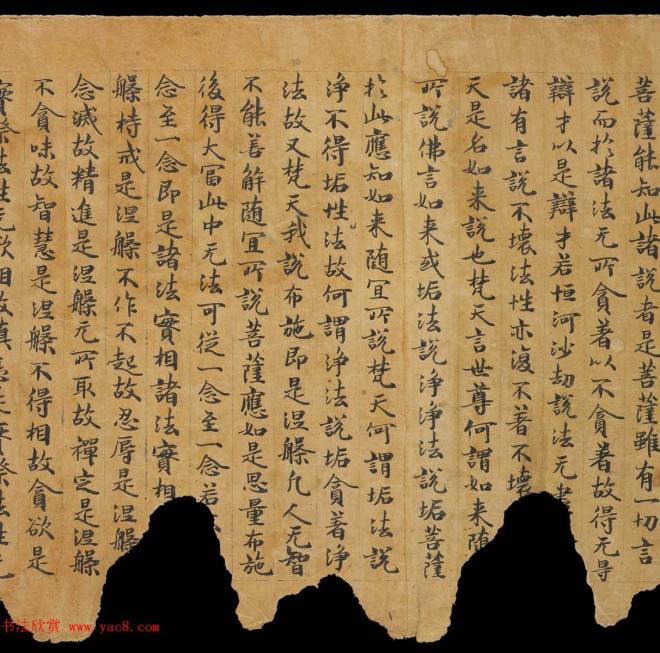 菩薩能知此諸說者是菩薩雖有一切言
說而於諸法无所貪著以不貪著故得无导
辯才以是辯才若恒河沙劫說法无盡
諸有言說不壞法性亦復不著不壞
天是名如来說也梵天言世尊何謂如来随
所說佛言如来或垢法說淨淨法說垢菩薩
於此應知如来随冝所說梵天何謂垢法說
淨不得垢性法故何謂淨法說垢貪著淨
法故又梵天我說布施即是涅槃凡人无智
不能善解随冝所說菩薩應如是思量布施
後得大冨此中无法可從一念至一念若
念至一念即是諸法實相諸法實相
槃持戒是涅槃不作不起故忍辱是涅槃
念滅故精進是涅槃无所取故禪定是涅槃
不貪味故智慧是涅槃不得相故貪欲是
實際法性无欲相故瞋恚是實際法性无
书法欣赏 www.yac8.com